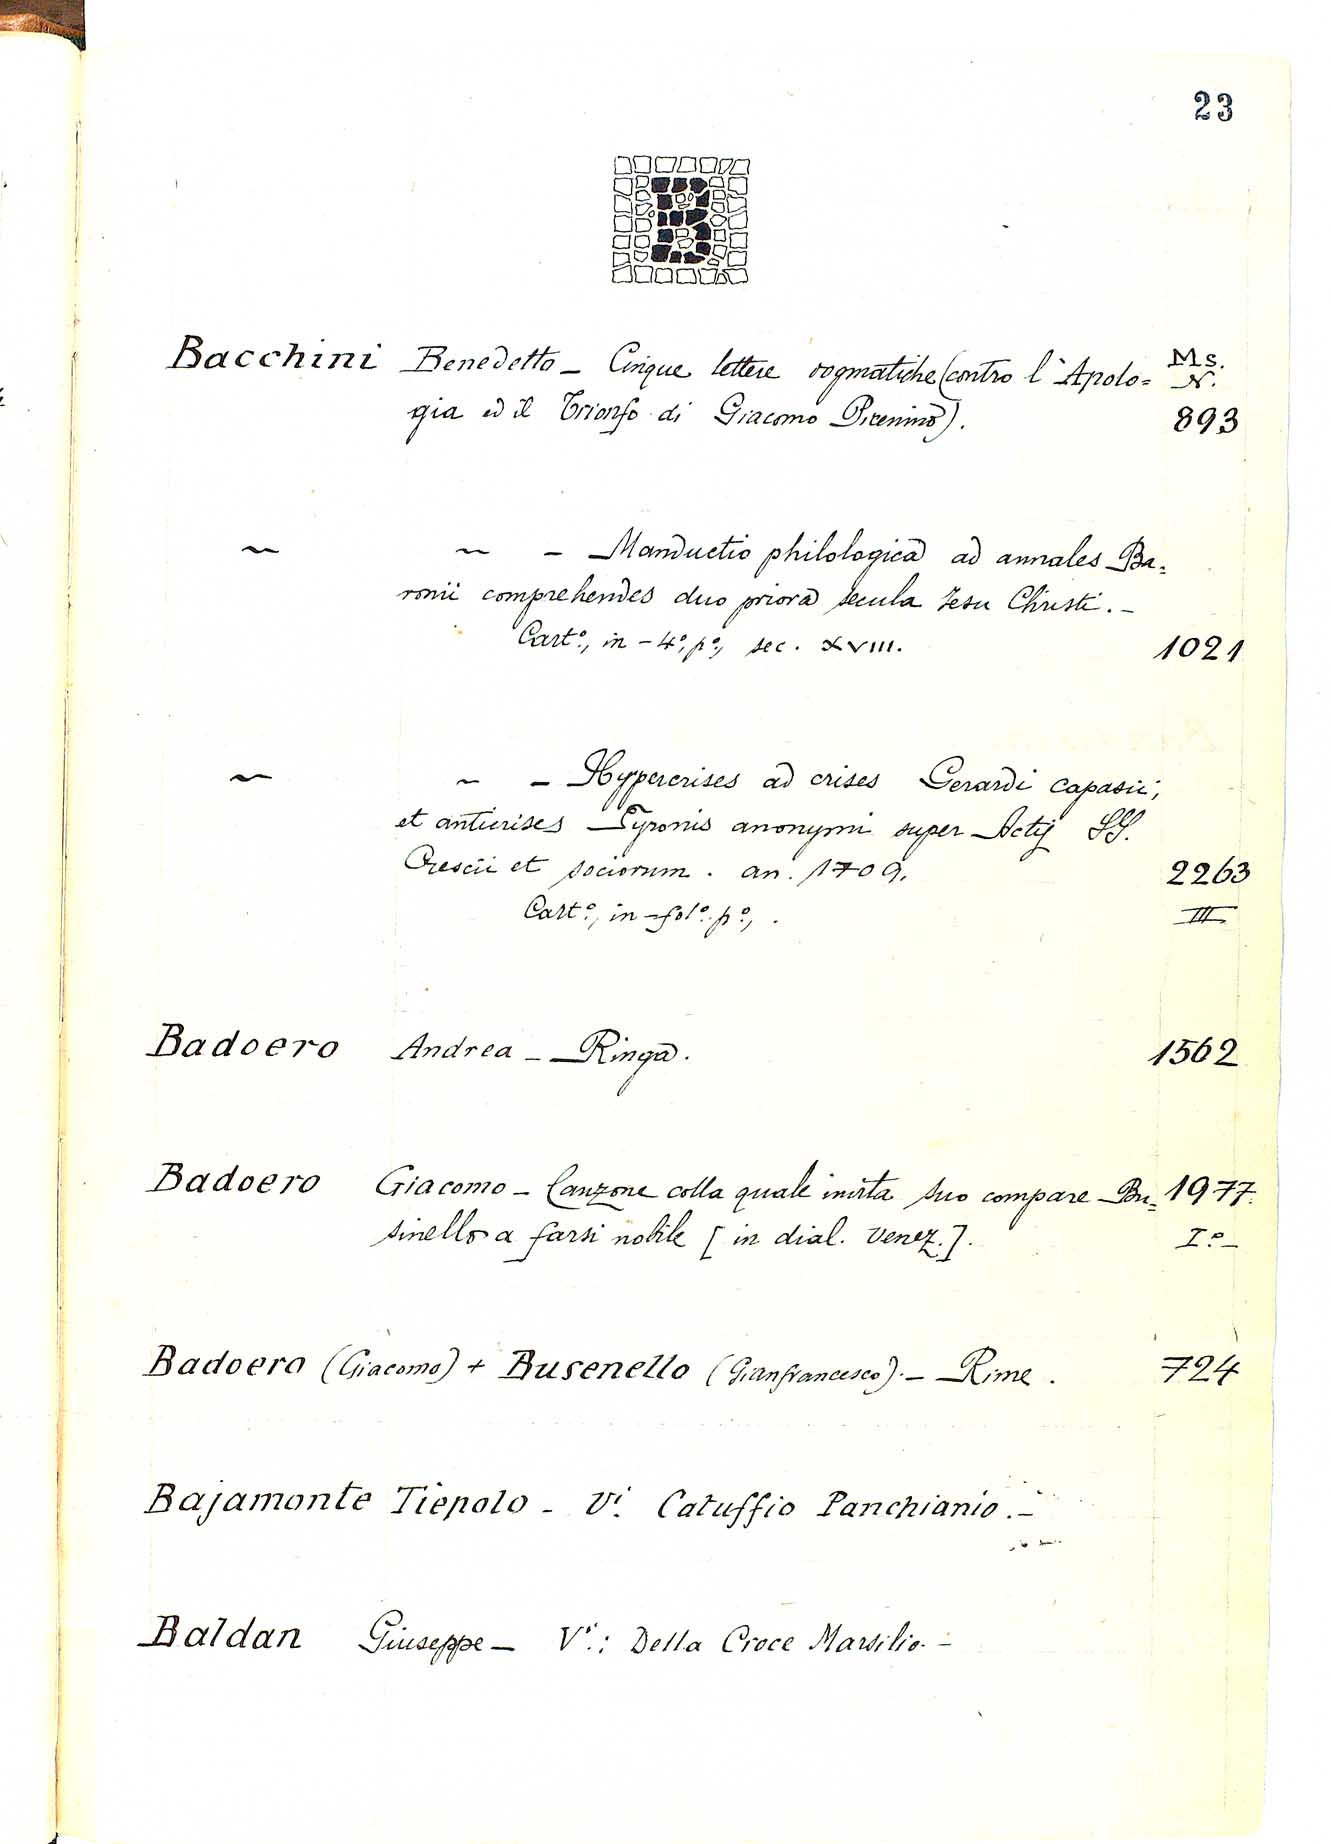 23
B
Bacchini Benedetto – Cinque lettere dogmatiche (contro l'Apolo= Ms. N.
gia ed il Trionfo di Giacomo Picenino). 893
~ ~ – Manductio philologica ad annales Ba=
ronii comprehendes duo priora secula Jesu Christi. –
Cart.º, in – 4.º, p.º, sec. XVIII. 1021
~ ~ – Hypercrises ad crises Gerardi Capasii,
et anticrises Tyronis anonymi super Actis SS.
Crescii et sociorum. an. 1709. 2263
Cart.º, in – fol.º p.º, . III
Badoero Andrea – Ringa. 1562
Badoero Giacomo – Canzone colla quale invita suo compare Bu= 1977.
sinello a farsi nobile [in dial. venez.]. I.º –
Badoero (Giacomo) + Busenello (Gianfrancesco). – Rime. 724
Bajamonte Tiepolo – Vi. Catuffio Panchianio. –
Baldan Giuseppe – Vi.: Della Croce Marsilio. –